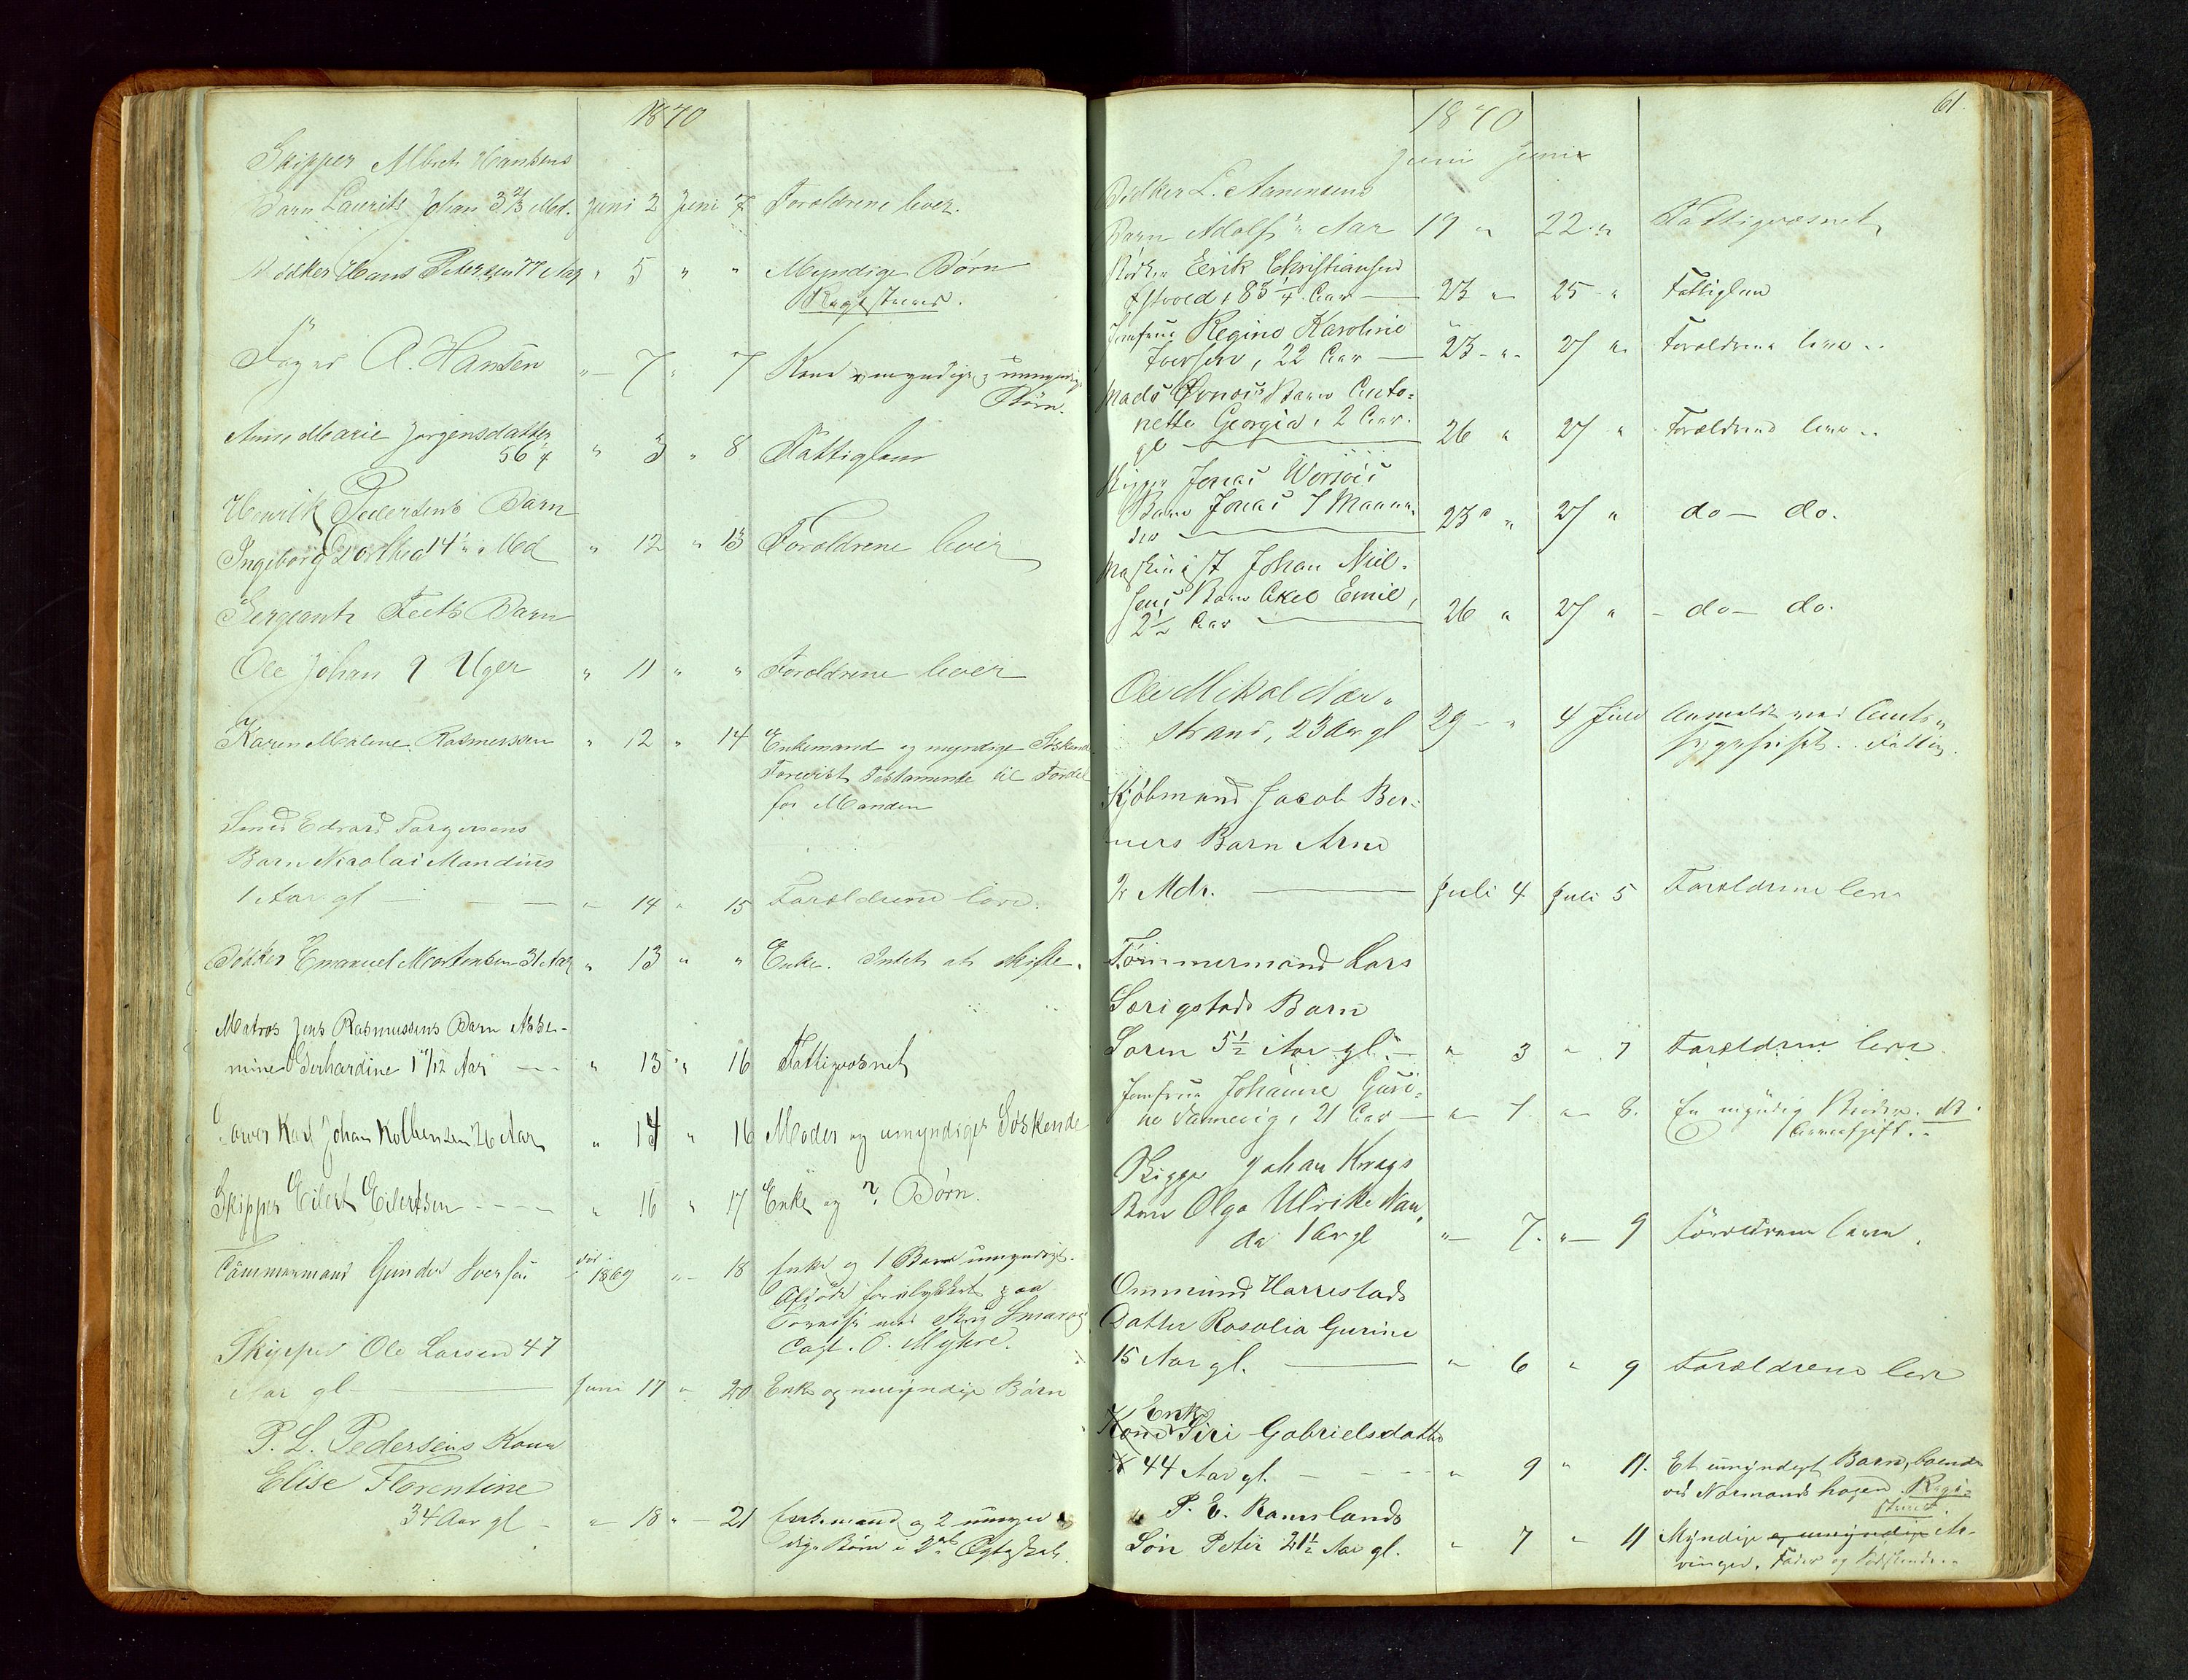 1870
Skipper Albert Hansens
Barn Laurits Johan 3 2/3 Md. Juni 2 Juni 7 Forældrene lever.
Bødker Hans Petersen 77 Aar " 5 " " Myndige Børn
Registreres.
Foged A. Hansen " 7 " 7 Kone myndige & umyndige
Børn.
Anne Marie Jørgensdatter
56 " 3 " 8 Fattiglem
Henrik Pedersens Barn
Ingeborg Dorthea 14 Md " 12 " 13 Forældrene lever
Sergeant Barn
Ole Johan 7 Uger " 11 " " Forældrene lever
Karen Malene Rasmussen " 12 " 14 Enkemand og myndige Søskende
Forevist Testamente til Fordel
for Manden
Smed Edvard Torgersens
Barn Nicolai Mandius
1 Aar gl — " 14 " 15 Forældrene leve.
Bødker Emanuel Mortensen 31 Aar " 13 " " Enke. Intet at skifte.
Matros Jens Rasmussens Barn
mine Gerhardine 1 11/12 Aar " 13 " 16 Fattigvæsnet
Garver Karl Johan Kolbensen 26 Aar " 14 " 16 Moder og umyndige Søskende
Skipper Eilert Eilertsen - - - - " 16 " 17 Enke og ? Børn.
Tømmermand Gunder Iversen død 1869 " 18 Enke og 1 Barn umyndigt.
Afdøde forulykket paa
med Brig Smarag
Capt. O. Myhre.
Skipper Ole Larsen 47
Aar gl — Juni 17 " 20 Enke og umyndige Børn
P. L. Pedersens Kone
Elise Florentine
34 Aar gl " 18 " 21 Enkemand og 2 umyn
dige Børn i 2det Ægteskab.
61.
1870
Juni Juni
Bødker L. Aanensens
Barn Adolf " Aar 19 " 22 " Fattigvæsnet
Eerik Christiansen
83 1/4 Aar — 23 " 25 " Fattiglem
Jomfrue Regine Karoline
Iversen, 22 Aar — 23 " 27 " Forældrene leve
Mads Barn Anto-
nette Georgia, 2 Aar
gl — 26 " 27 " Forældrene leve
Skipper Jonas
Barn Jonas 7 Maane-
der — 23 " 27 " do — do.
Maskinist Johan Niel-
sens Barn Axel Emil,
2 1/2 Aar — 26 " 27 " do — do.
Ole Mikal Nær-
strand, 23 Aar gl 29 " 4 Juli Anmeldt ved Amts-
sygehuset. Fattig.
Kjøbmand Jacob Ber-
ners Barn Arne
2 Mdr. — Juli 4 Juli 5 Forældrene leve
Tømmermand Lars
Sørigstads Barn
Søren 5 1/2 Aar gl. — " 3 " 7 Forældrene leve
Jomfrue Johanne Guri-
ne Tannevig, 21 Aar — " 7. " 8. En myndig Broder.
Arveafgift.
Skipper Johan Krags
Barn Olga Ulrike Nan-
da 1 Aar gl " 7. " 9 Forældrene leve.
Ommund Harrestads
Datter Rosalia Gurine
15 Aar gl. — " 6 " 9 Forældrene leve
Enke
Kone Siri Gabrielsdatter
44 Aar gl. - - - " 9 " 11. Et umyndigt Barn, boende
ved Normands hagen. Regi-
streret
P. E. Ramslands
Søn Peter 21 1/2 Aar gl. " 7 " 11 Myndige og umyndige Ar-
vinger. Fader og Sødskende.